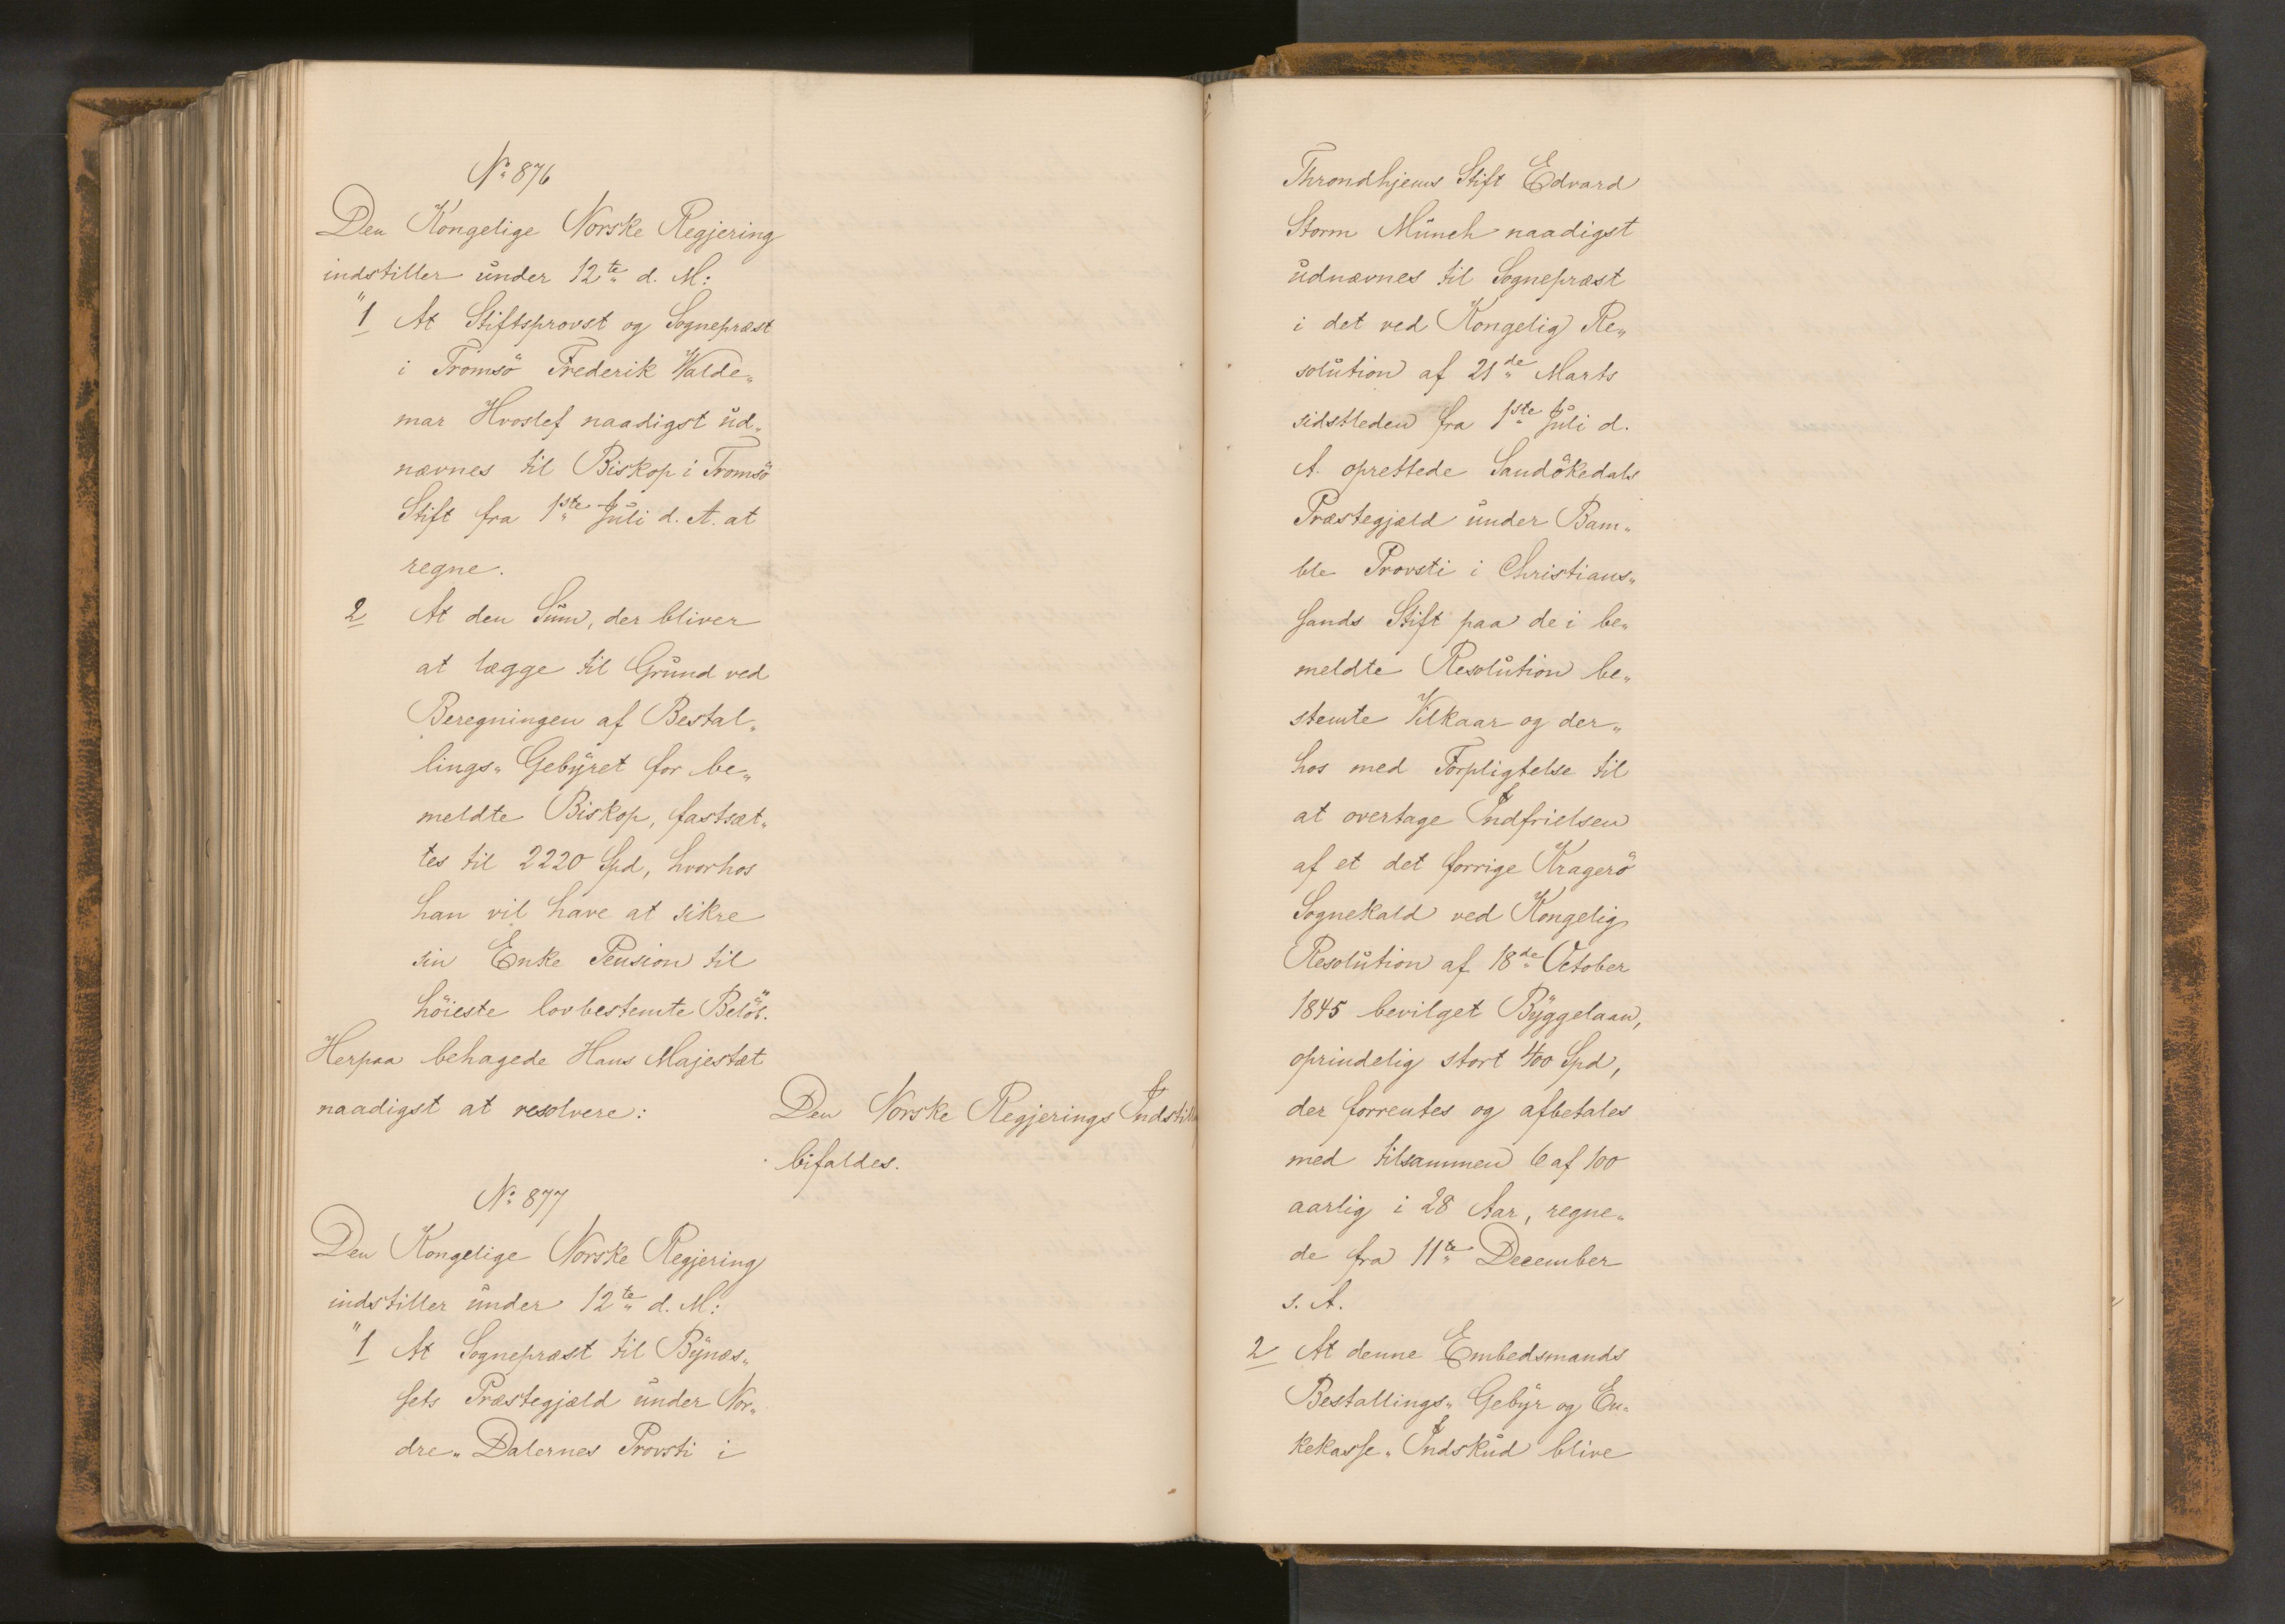 No 876
Den Kongelige Norske Regjering
indstiller under 12te d. M:
"1 At Stiftsprovst og Sognepræst
i Tromsö Frederik Walde„
mar Hvoslef naadigst ud„
nævnes til Biskop i Tromsö
Stift fra 1ste Juli d. A. at
regne.
2 At den Sum, der bliver
at lægge til Grund ved
Beregningen af Bestal„
lings„Gebyret for be„
meldte Biskop, fastsæt„
tes til 2220 Spd, hvorhos
han vil have at sikre
sin Enke Pension til
höieste lovbestemte Belöb."
Herpaa behagede Hans Majestæt
naadigst at resolvere:
Den Norske Regjerings Indstilling
bifaldes.
No 877
Den Kongelige Norske Regjering
indstiller under 12te d. M:
"1 At Sognepræst til Bynæs„
sets Præstegjæld under Nor„
dre„Dalernes Provsti i
Throndhjems Stift Edvard
Storm Münch naadigst
udnævnes til Sognepræst
i det ved Kongelig Re„
solution af 21de Marts
sidstleden fra 1ste Juli d.
A. oprettede Sandökedals
Præstegjæld under Bam„
ble Provsti i Christians„
sands Stift paa de i be„
meldte Resolution be„
stemte Vilkaar og der„
hos med Forpligtelse til
at overtage Indfrielsen
af et det forrige Kragerö
Sognekald ved Kongelig
Resolution af 18de October
1845 bevilget Byggelaan,
oprindelig stort 400 Spd,
der forrentes og afbetales
med tilsammen 6 af 100
aarlig i 28 Aar, regne„
de fra 11te December
s. A.
2 At denne Embedsmands
Bestallings„Gebyr og En„
kekasse„Indskud blive